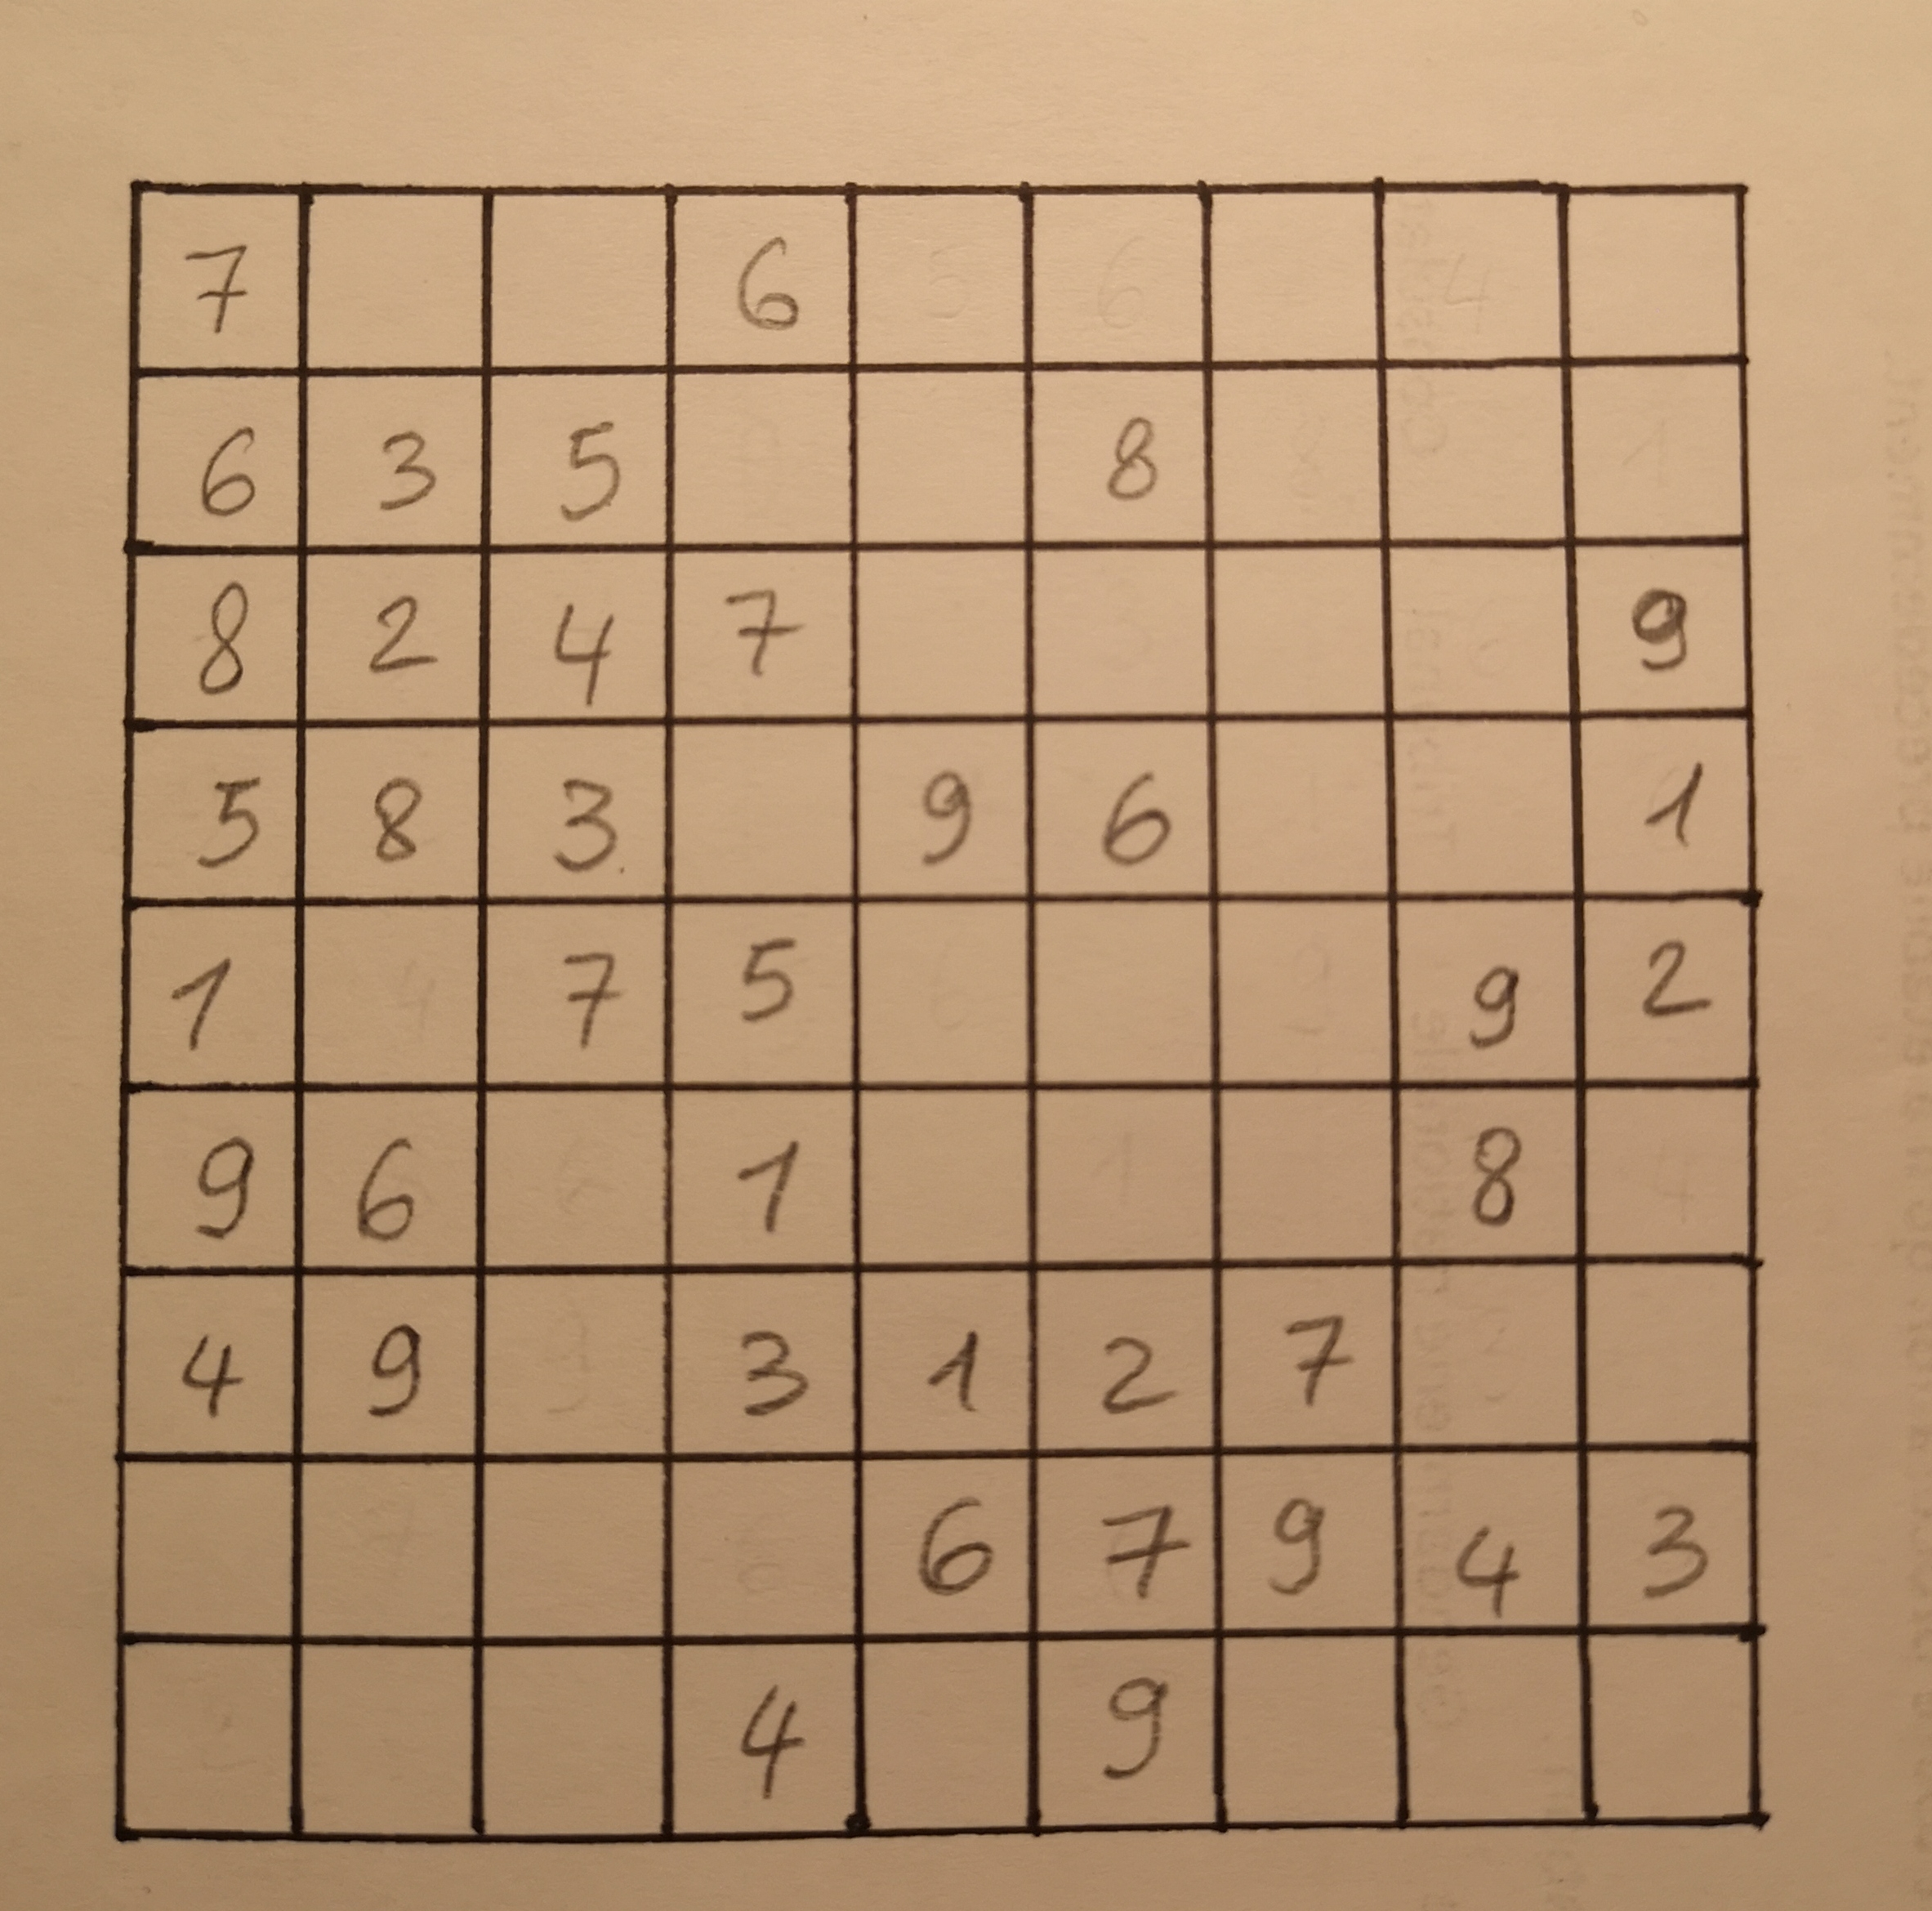 7 6
6 3 5 8
8 2 4 7 9
5 8 3 9 6 1
1 7 5 9 2
9 6 1 8
4 9 3 1 2 7
6 7 9 4 3
4 9